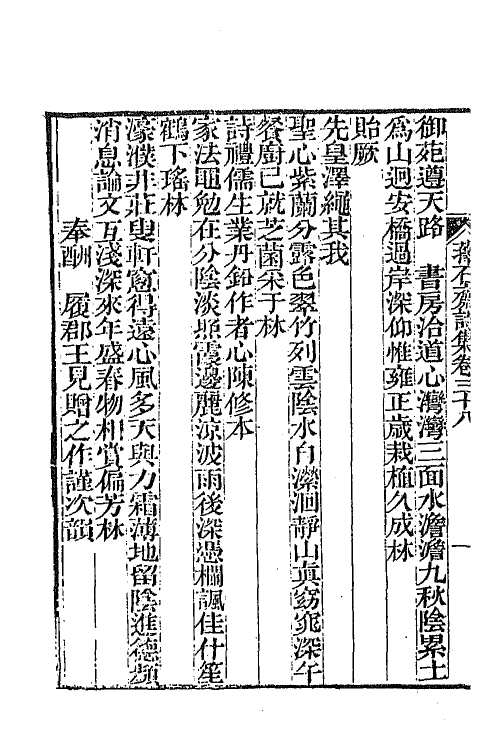 御苑遵天路　書房治道心灣灣三面水澹澹九秋陰累土
為山迥安橋過岸深仰惟雍正歲栽植久成林
貽厥
先皇澤繩其我
聖心紫蘭分露色翠竹列雲陰水白瀠洄靜山真窈窕深午
餐廚已就芝菌采于林
詩禮儒生業丹鉛作者心陳修本
家法黽勉在分陰淡照霞邊麗涼波雨後深憑欄諷佳什笙
鶴下瑤林
濠濮非莊叟軒窗得遠心風多天與力霜薄地留陰進德頻
消息論文互淺深來年盛春物相賞偏芳林
奉酬　履郡王見贈之作謹次韻
蘀石齋詩集卷三十八
一